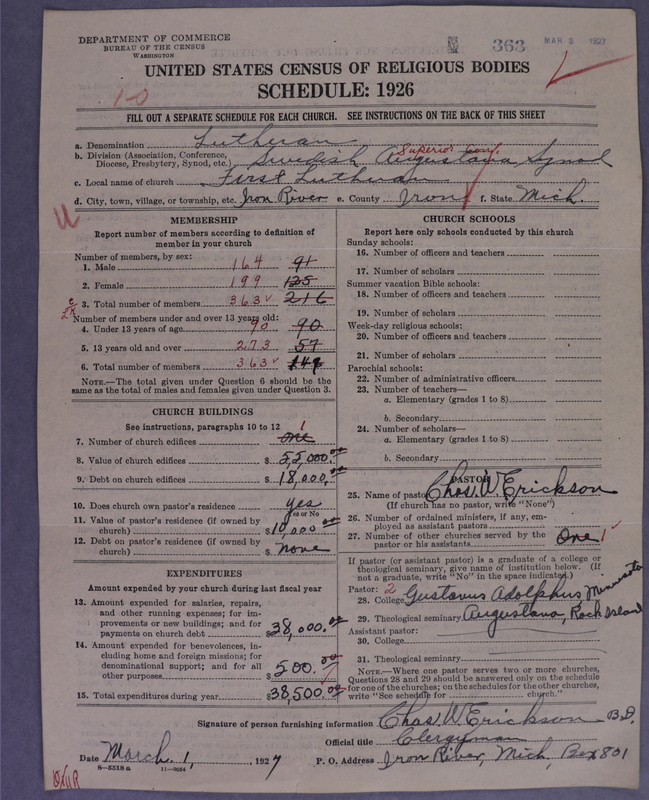 DEPARTMENT OF COMMERCE
BUREAU OF THE CENSUS
WASHINGTON
363
MAR 8 1927
UNITED STATES CENSUS OF RELIGIOUS BODIES
SCHEDULE: 1926
10
FILL OUT A SEPARATE SCHEDULE FOR EACH CHURCH. SEE INSTRUCTIONS ON THE BACK OF THIS SHEET
a. Denomination Lutheran
b. Division (Association, Conference, Diocese, Presbytery, Synod, etc.) Swedish Augustana Synod
Superior Conf.
c. Local name of church First Lutheran
d. City, town, village, or township, etc. Iron River e. County Iron f. State Mich.
MEMBERSHIP
Report number of members according to definition of
member in your church
Number of members, by sex:
1. Male 164 91
2. Female 199 125
3. Total number of members 363 216
Number of members under and over 13 years old:
4. Under 13 years of age 90 90
5. 13 years old and over 273 57
6. Total number of members 363 147
NOTE.—The total given under Question 6 should be the
same as the total of males and females given under Question 3.
CHURCH BUILDINGS
See instructions, paragraphs 10 to 12
7. Number of church edifices one 1
8. Value of church edifices $ 55,000.00
9. Debt on church edifices $ 18,000.00
10. Does church own pastor's residence yes
Yes or No
11. Value of pastor's residence (if owned by
church) $ 10,000.00
12. Debt on pastor's residence (if owned by
church) $ none
EXPENDITURES
Amount expended by your church during last fiscal year
13. Amount expended for salaries, repairs,
and other running expenses; for im-
provements or new buildings; and for
payments on church debt $ 38,000.00
14. Amount expended for benevolences, in-
cluding home and foreign missions; for
denominational support; and for all
other purposes $ 500.00
15. Total expenditures during year $ 38,500.00
CHURCH SCHOOLS
Report here only schools conducted by this church
Sunday schools:
16. Number of officers and teachers
17. Number of scholars
Summer vacation Bible schools:
18. Number of officers and teachers
19. Number of scholars
Week-day religious schools:
20. Number of officers and teachers
21. Number of scholars
Parochial schools:
22. Number of administrative officers
23. Number of teachers—
a. Elementary (grades 1 to 8)
b. Secondary
24. Number of scholars—
a. Elementary (grades 1 to 8)
b. Secondary
PASTOR
25. Name of pastor Chas. W. Erickson
(If church has no pastor, write "None")
26. Number of ordained ministers, if any, em-
ployed as assistant pastors
27. Number of other churches served by the
pastor or his assistants One 1
If pastor (or assistant pastor) is a graduate of a college or
theological seminary, give name of institution below. (If
not a graduate, write "No" in the space indicated.)
Pastor: 2
28. College Gustavus Adolphus Minnesota
29. Theological seminary Augustana, Rock Island
Assistant pastor:
30. College
31. Theological seminary
NOTE.—Where one pastor serves two or more churches,
Questions 28 and 29 should be answered only on the schedule
for one of the churches; on the schedules for the other churches,
write "See schedule for church."
Signature of person furnishing information Chas. W. Erickson B.D.
Official title Clergyman
Date March 1, 1927 P. O. Address Iron River, Mich. Box 801
8—5518 a 11—9554